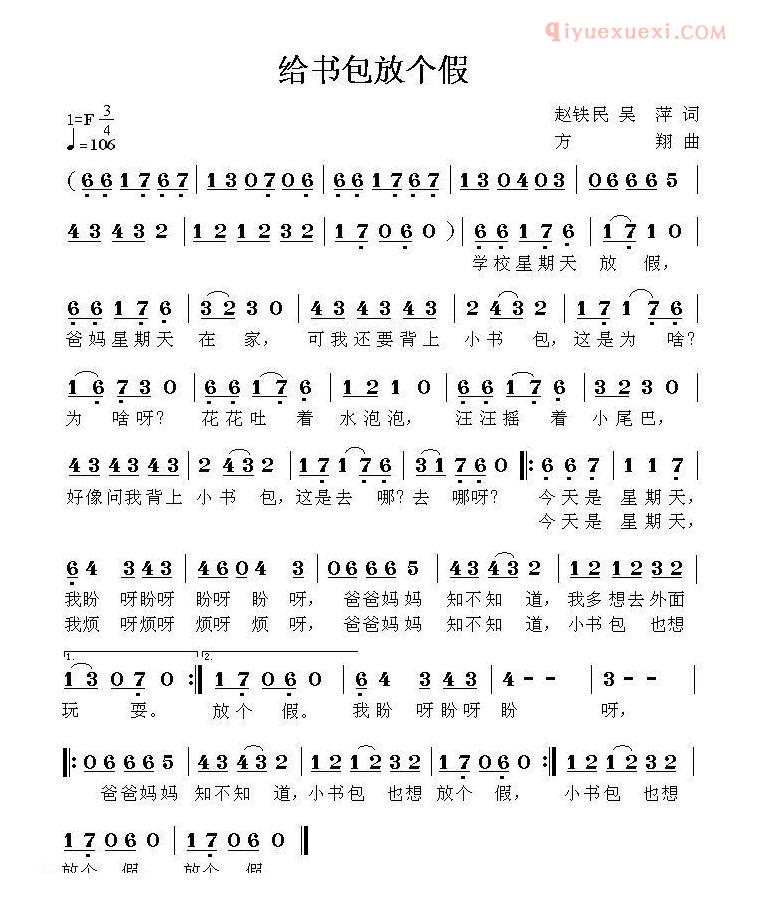 qiyuexuexi.com
给书包放个假
1=F 3/4
♩=106
赵铁民 吴 萍 词
方 翔 曲
( 6 6 1 7 6 7 | 1 3 0 7 0 6 | 6 6 1 7 6 7 | 1 3 0 4 0 3 | 0 6 6 6 5 |
4 3 4 3 2 | 1 2 1 2 3 2 | 1 7 0 6 0 ) | 6 6 1 7 6 | 1 7 1 0 |
学校星期天 放 假，
6 6 1 7 6 | 3 2 3 0 | 4 3 4 3 4 3 | 2 4 3 2 | 1 7 1 7 6 |
爸妈星期天 在 家， 可我还要背上 小书 包，这是为 啥？
1 6 7 3 0 | 6 6 1 7 6 | 1 2 1 0 | 6 6 1 7 6 | 3 2 3 0 |
为 啥呀？ 花花吐 着 水泡泡， 汪汪摇 着 小尾巴，
4 3 4 3 4 3 | 2 4 3 2 | 1 7 1 7 6 | 3 1 7 6 0 ‖: 6 6 7 | 1 1 7 |
好像问我背上 小书 包，这是去 哪？去 哪呀？ 今天是 星期天，
今天是 星期天，
6 4 3 4 3 | 4 6 0 4 3 | 0 6 6 6 5 | 4 3 4 3 2 | 1 2 1 2 3 2 |
我盼 呀盼呀 盼呀 盼 呀， 爸爸妈妈 知不知 道，我多想去外面
我烦 呀烦呀 烦呀 烦 呀， 爸爸妈妈 知不知 道，小书包 也想
1. 1 3 0 7 0 :‖ 2. 1 7 0 6 0 | 6 4 3 4 3 | 4 - - | 3 - - |
玩 耍。 放个 假。 我盼 呀盼呀 盼 呀，
‖: 0 6 6 6 5 | 4 3 4 3 2 | 1 2 1 2 3 2 | 1 7 0 6 0 :‖ 1 2 1 2 3 2 |
爸爸妈妈 知不知 道，小书包 也想 放个 假， 小书包 也想
1 7 0 6 0 | 1 7 0 6 0 ‖
放个 假 放个 假